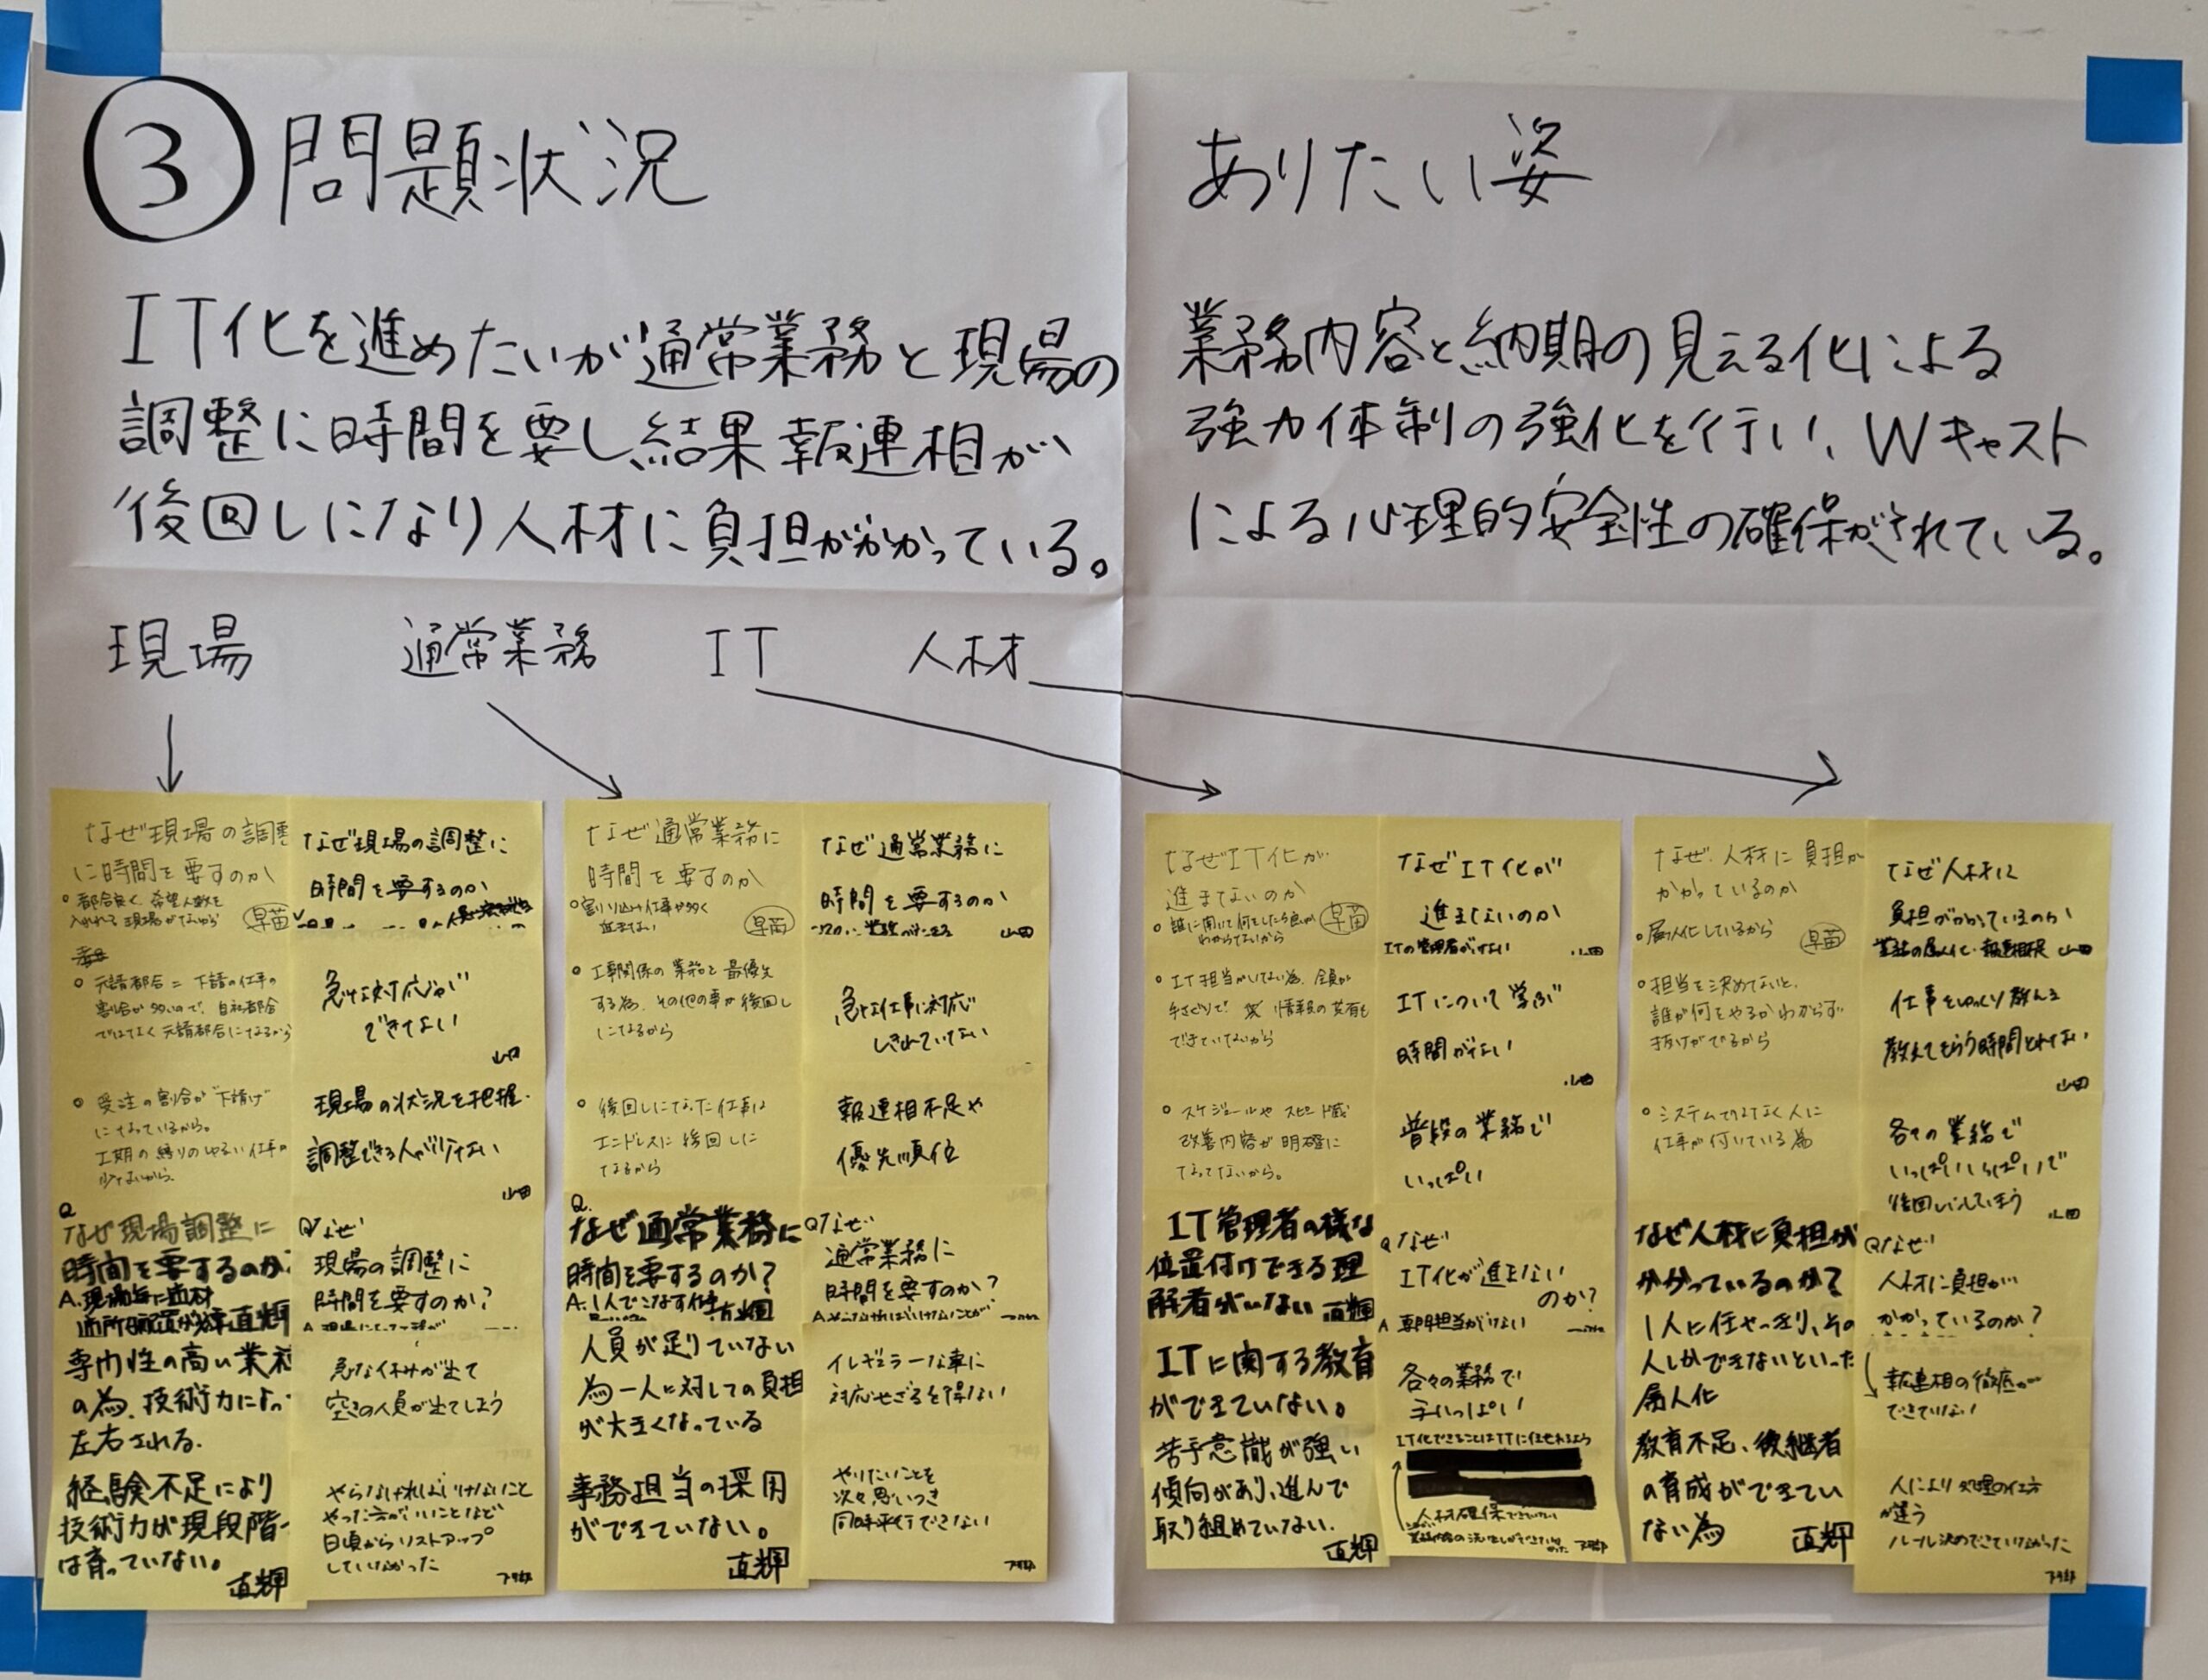 ③ 問題状況
IT化を進めたいが通常業務と現場の
調整に時間を要し結果報連相が
後回しになり人材に負担がかかっている。
ありたい姿
業務内容と納期の見える化による
強力体制の強化を行い、Wキャスト
による心理的安全性の確保がされている。
現場 通常業務 IT 人材
なぜ現場の調整
に時間を要すのか
都合良く、希望人数を
入れれる現場がないから
早苗
元請都合=下請の仕事の
割合が多いので、自社都合
ではなく元請都合になるから
受注の割合が下請け
になっているから。
工期の縛りのゆるい仕事が
少ないから。
Q
なぜ現場調整に
時間を要するのか?
A.現場毎に適材
直輝
専門性の高い業務
の為、技術力によっ
左右される。
経験不足により
技術力が現段階
は育っていない。
直輝
なぜ現場の調整に
時間を要するのか
急な対応が
できてない
山田
現場の状況を把握・
調整できる人が少ない
山田
Qなぜ
現場の調整に
時間を要すのか?
急な休みが出て
空きの人員が出てしまう
やらなければいけないこと
やった方がいいことなど
日頃からリストアップ
していなかった
なぜ通常業務に
時間を要すのか
割り込み仕事が多く
進まない
早苗
工事関係の業務を最優先
する為、その他の事が後回し
になるから
後回しになった仕事は
エンドレスに後回しに
なるから
Q.
なぜ通常業務に
時間を要するのか?
A.1人でこなす仕事
直輝
人員が足りていない
為一人に対しての負担
が大きくなっている
事務担当の採用
ができていない。
直輝
なぜ通常業務に
時間を要するのか
山田
急な仕事に対応
しきれていない
報連相不足や
優先順位
Qなぜ
通常業務に
時間を要すのか?
イレギュラーな事に
対応せざるを得ない
やりたいことを
次々思いつき
同時平行できない
なぜIT化が
進まないのか
誰に聞いて何をしたら良いか
わからないから
早苗
IT担当がいない為、全員が
手さぐりで、情報の共有も
できていないから
スケジュールやスピード感
改善内容が明確に
なってないから。
IT管理者の様な
位置付けできる理
解者がいない 直輝
ITに関する教育
ができていない。
苦手意識が強い
傾向があり、進んで
取り組めていない。
直輝
なぜIT化が
進まないのか
ITの管理者がいない
山田
ITについて学ぶ
時間がない
山田
普段の業務で
いっぱい
Qなぜ
IT化が進まない
のか?
A 専門担当がいない
各々の業務で
手いっぱい
IT化できることはITに任せれるよう
人材確保できていない
なぜ、人材に負担が
かかっているのか
属人化しているから
早苗
担当を決めてないと、
誰が何をやるかわからず
抜けがでるから
システムではなく人に
仕事が付いている為
なぜ人材に負担が
かかっているのか?
1人に任せっきり、その
人しかできないといった
属人化
教育不足、後継者
の育成ができてい
ない為
直輝
なぜ人材に
負担がかかっているのか
業務の属人化・報連相不足 山田
仕事をゆっくり教える
教えてもらう時間とれない
山田
各々の業務で
いっぱいいっぱいで
後回しにしてしまう
山田
Qなぜ
人材に負担が
かかっているのか?
報連相の徹底が
できていない
人により処理の仕方
が違う
ルール決めできていなかった